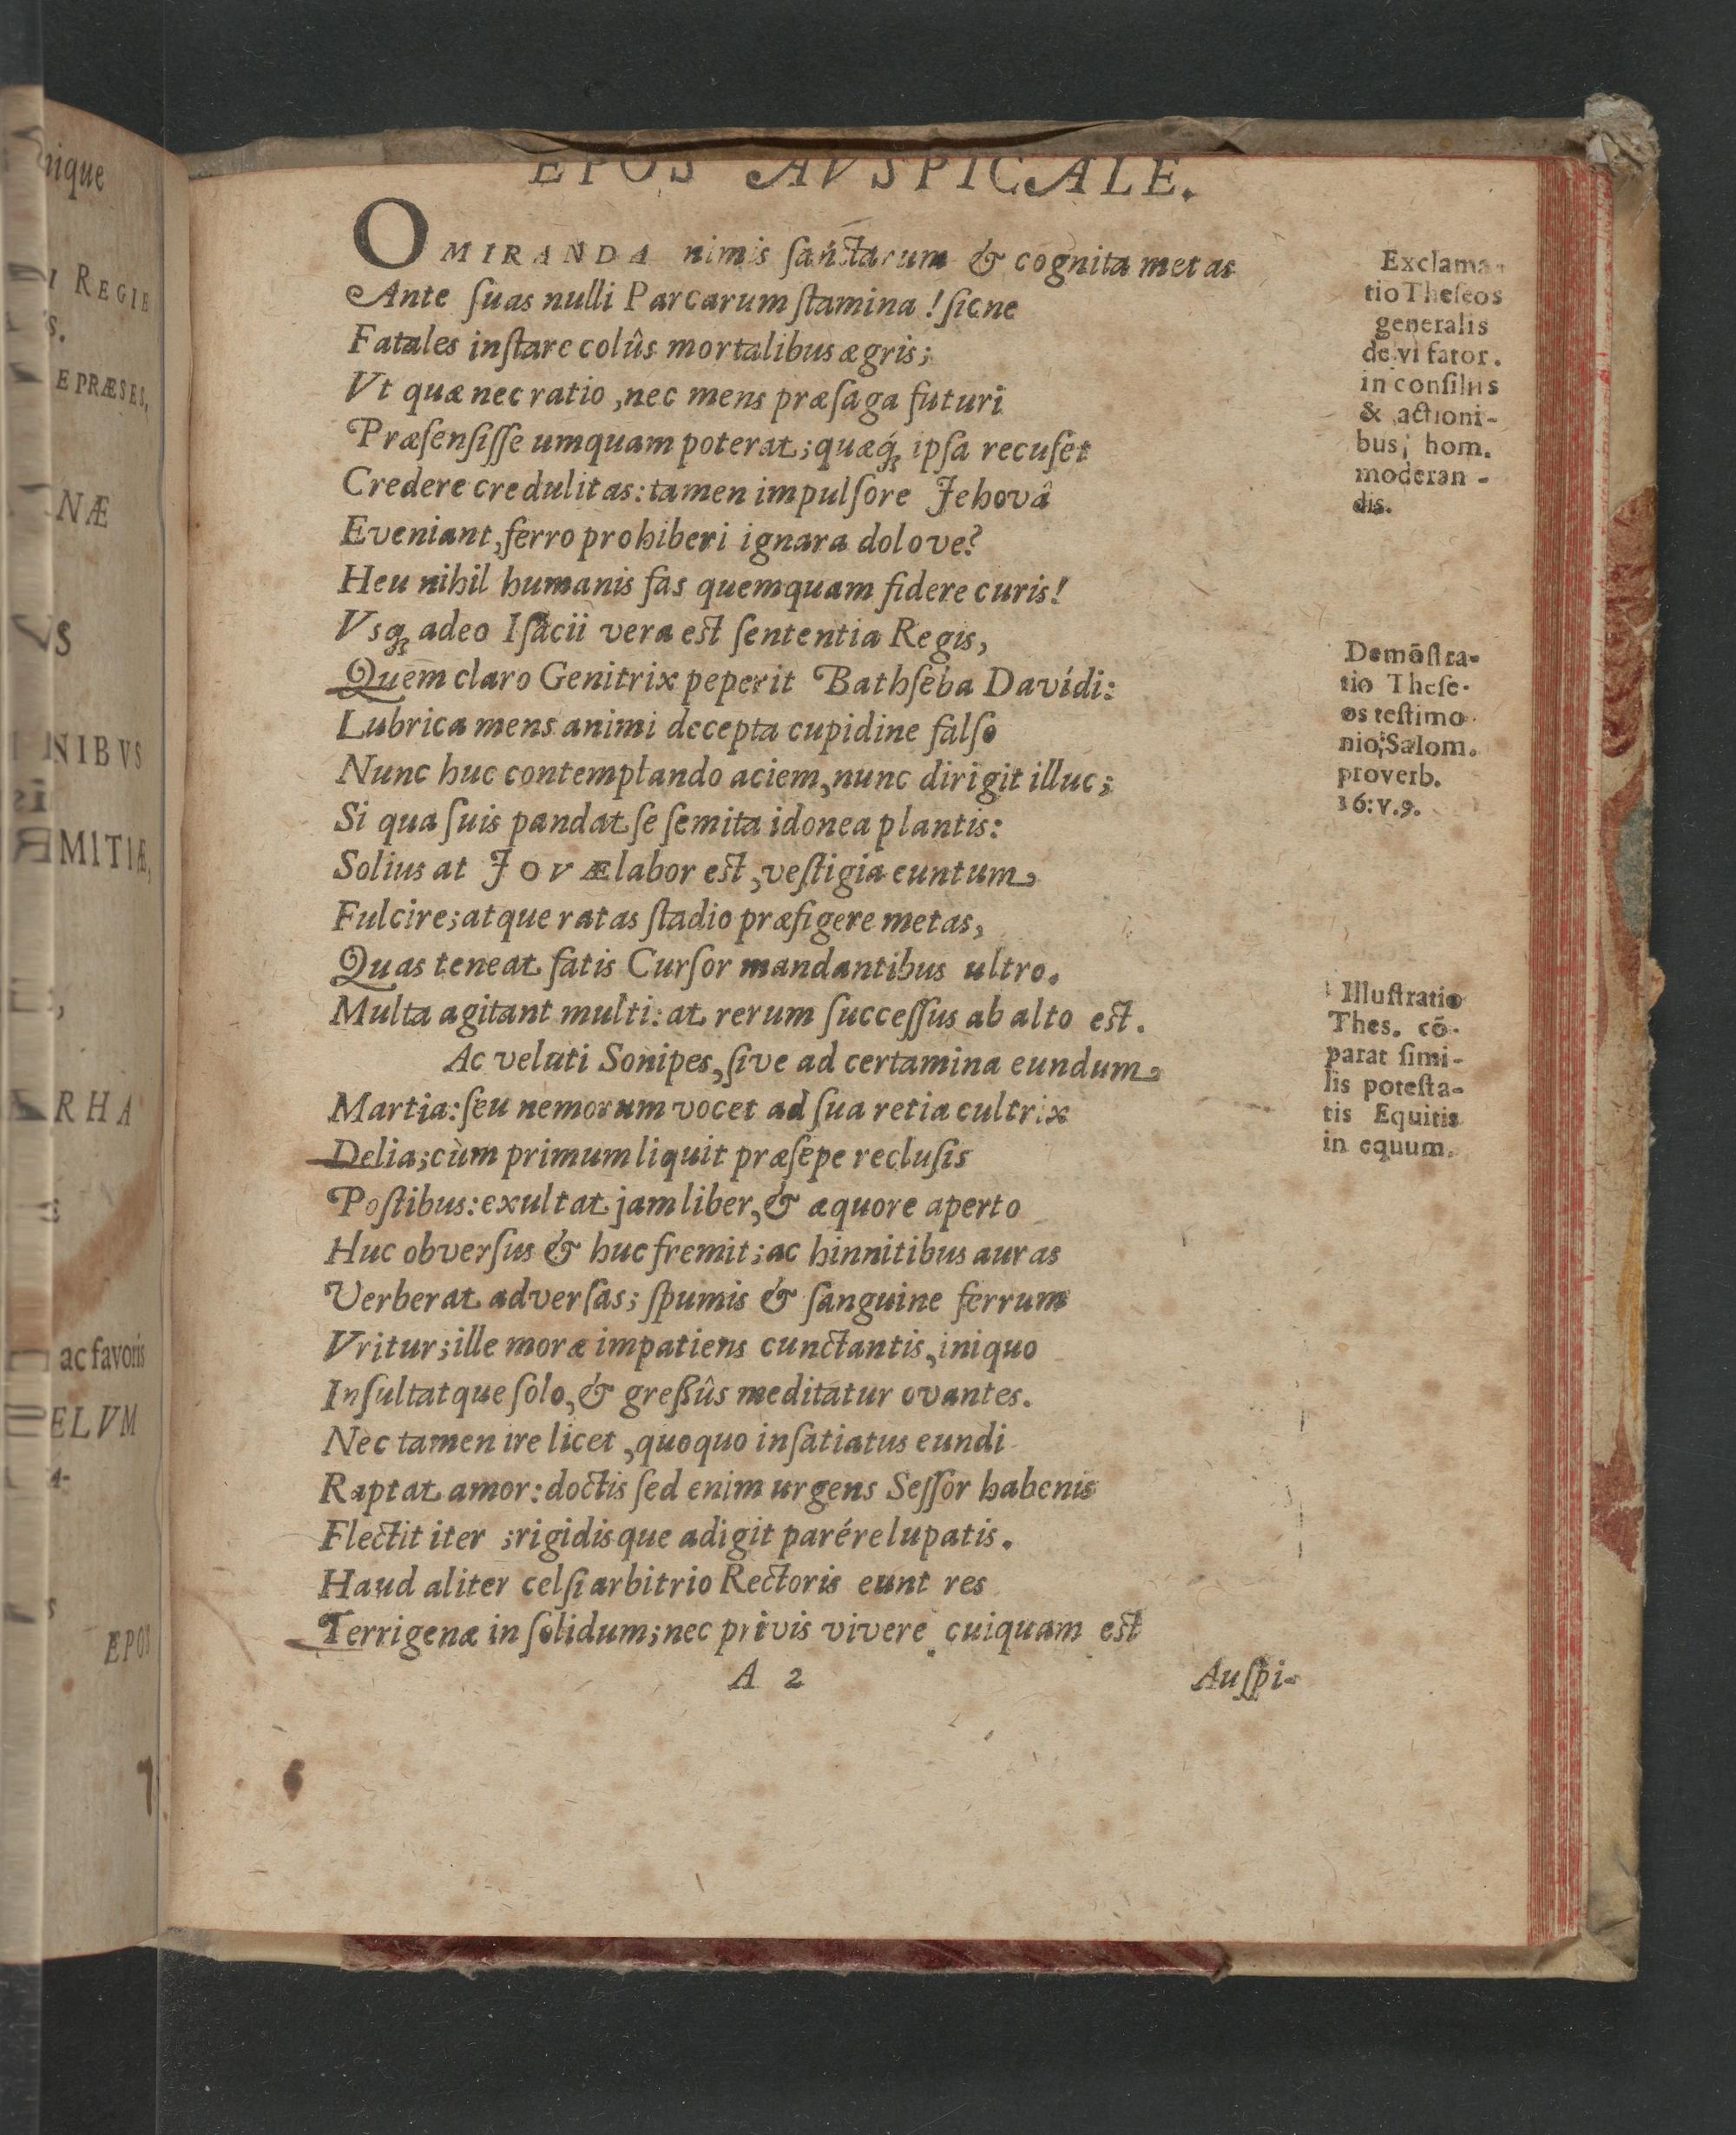 nique
I REGIE
S.
E PRÆSES,
NÆ
VS
NIBVS
MITIÆ,
RHA
ac favoris
ELVM
EPOS
EPOS AVSPICALE.
O MIRANDA nimis ſanctarum & cognita metas
Ante ſuas nulli Parcarum ſtamina! ſicne
Fatales inſtare colûs mortalibus ægris;
Vt quæ nec ratio, nec mens præſaga futuri
Præſenſiſſe umquam poterat; quæq́ꝫ ipſa recuſet
Credere credulitas: tamen impulſore Jehovâ
Eveniant, ferro prohiberi ignara dolove?
Heu nihil humanis fas quemquam fidere curis!
Vsqꝫ adeo Iſacii vera est ſententia Regis,
Quem claro Genitrix peperit Bathſeba Davidi:
Lubrica mens animi decepta cupidine falſo
Nunc huc contemplando aciem, nunc dirigit illuc;
Si qua ſuis pandat ſe ſemita idonea plantis:
Solius at JOVÆ labor est, veſtigia euntum
Fulcire; atque ratas ſtadio præfigere metas,
Quas teneat fatis Curſor mandantibus ultro.
Multa agitant multi: at rerum ſucceſſus ab alto est.
Ac veluti Sonipes, ſive ad certamina eundum
Martia: ſeu nemorum vocet ad ſua retia cultrix
Delia; cùm primum liquit præſepe recluſis
Poſtibus: exultat jam liber, & æquore aperto
Huc obverſus & huc fremit; ac hinnitibus auras
Verberat adverſas; ſpumis & ſanguine ferrum
Vritur; ille moræ impatiens cunctantis, iniquo
Inſultatque ſolo, & greßûs meditatur ovantes.
Nec tamen ire licet, quoquo inſatiatus eundi
Raptat amor: doctis ſed enim urgens Seſſor habenis
Flectit iter; rigidisque adigit parére lupatis.
Haud aliter celſi arbitrio Rectoris eunt res
Terrigenæ in ſolidum; nec privis vivere cuiquam est
A 2
Auſpi-
Exclama-
tio Theſeos
generalis
de vi fator.
in conſiliis
& actioni-
bus, hom.
moderan-
dis.
Demōſtra-
tio Theſe-
os teſtimo-
nio, Salom.
proverb.
16:v.9.
Illuſtratio
Thes. cō-
parat ſimi-
lis poteſta-
tis Equitis
in equum.